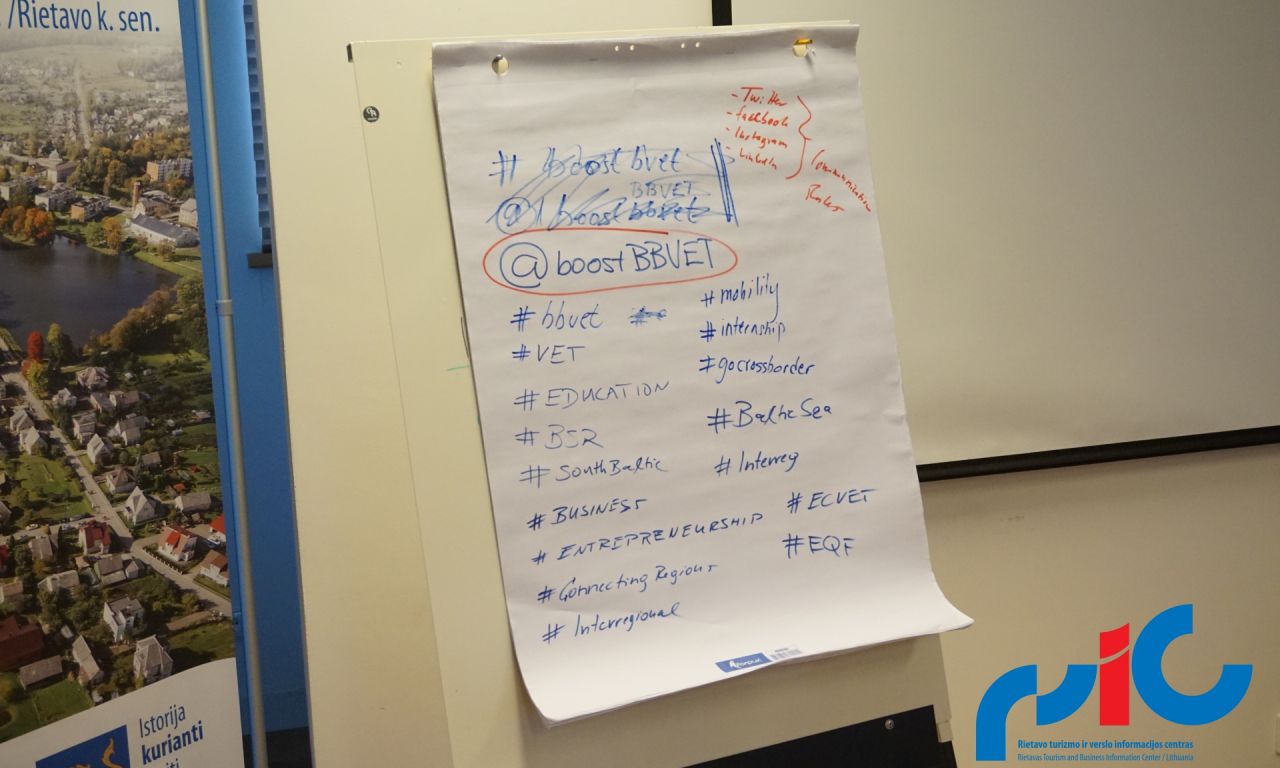 /Rietavo k. sen.
- Twitter
- facebook
- Instagram
- LinkedIn
Communication
Rules
# boost bvet
BBVET
@ boost bbvet
@boostBBVET
#bbvet
#VET
#EDUCATION
#BSR
#SouthBaltic
#BUSINESS
#ENTREPRENEURSHIP
#ConnectingRegions
#Interregional
#mobility
#internship
#gocrossborder
#BalticSea
#Interreg
#ECVET
#EQF
Istorija
kurianti
ric
Rietavo turizmo ir verslo informacijos centras
Rietavas Tourism and Business Information Center / Lithuania